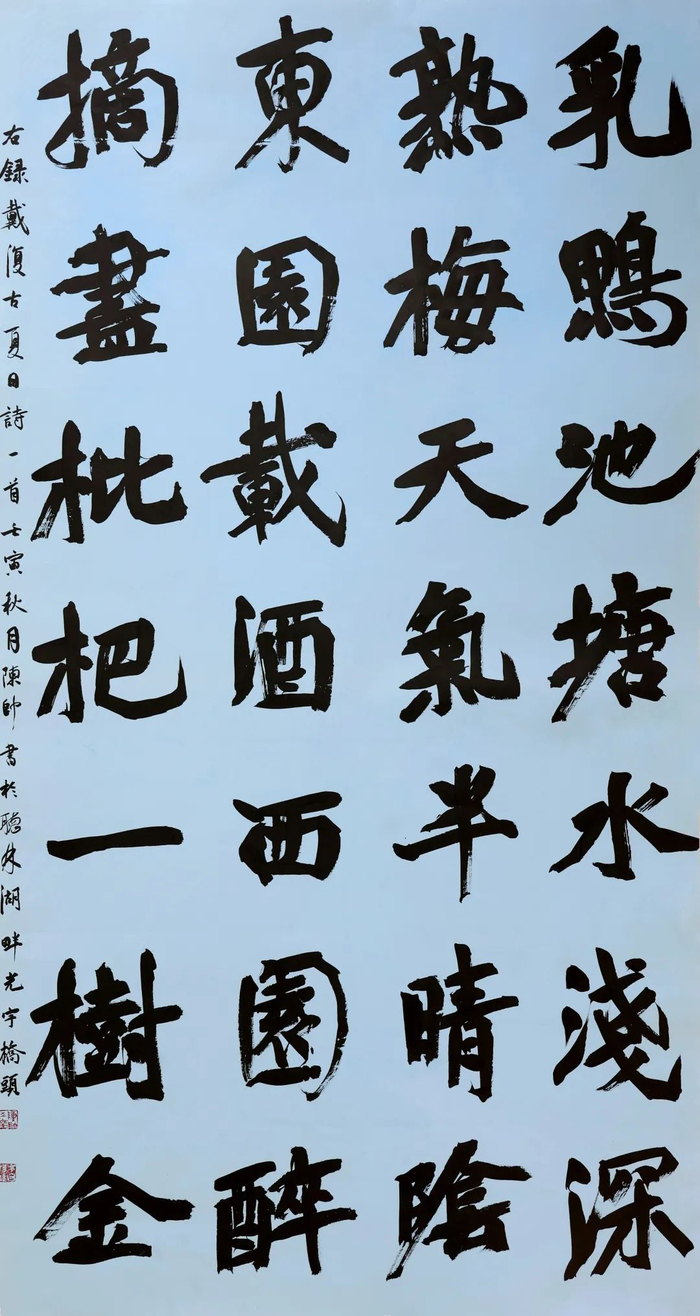 乳鴨池塘水淺深
熟梅天氣半晴陰
東園載酒西園醉
摘盡枇杷一樹金
右錄戴復古夏日詩一首壬寅秋月陳帥書於聽林湖畔光宇橋頭